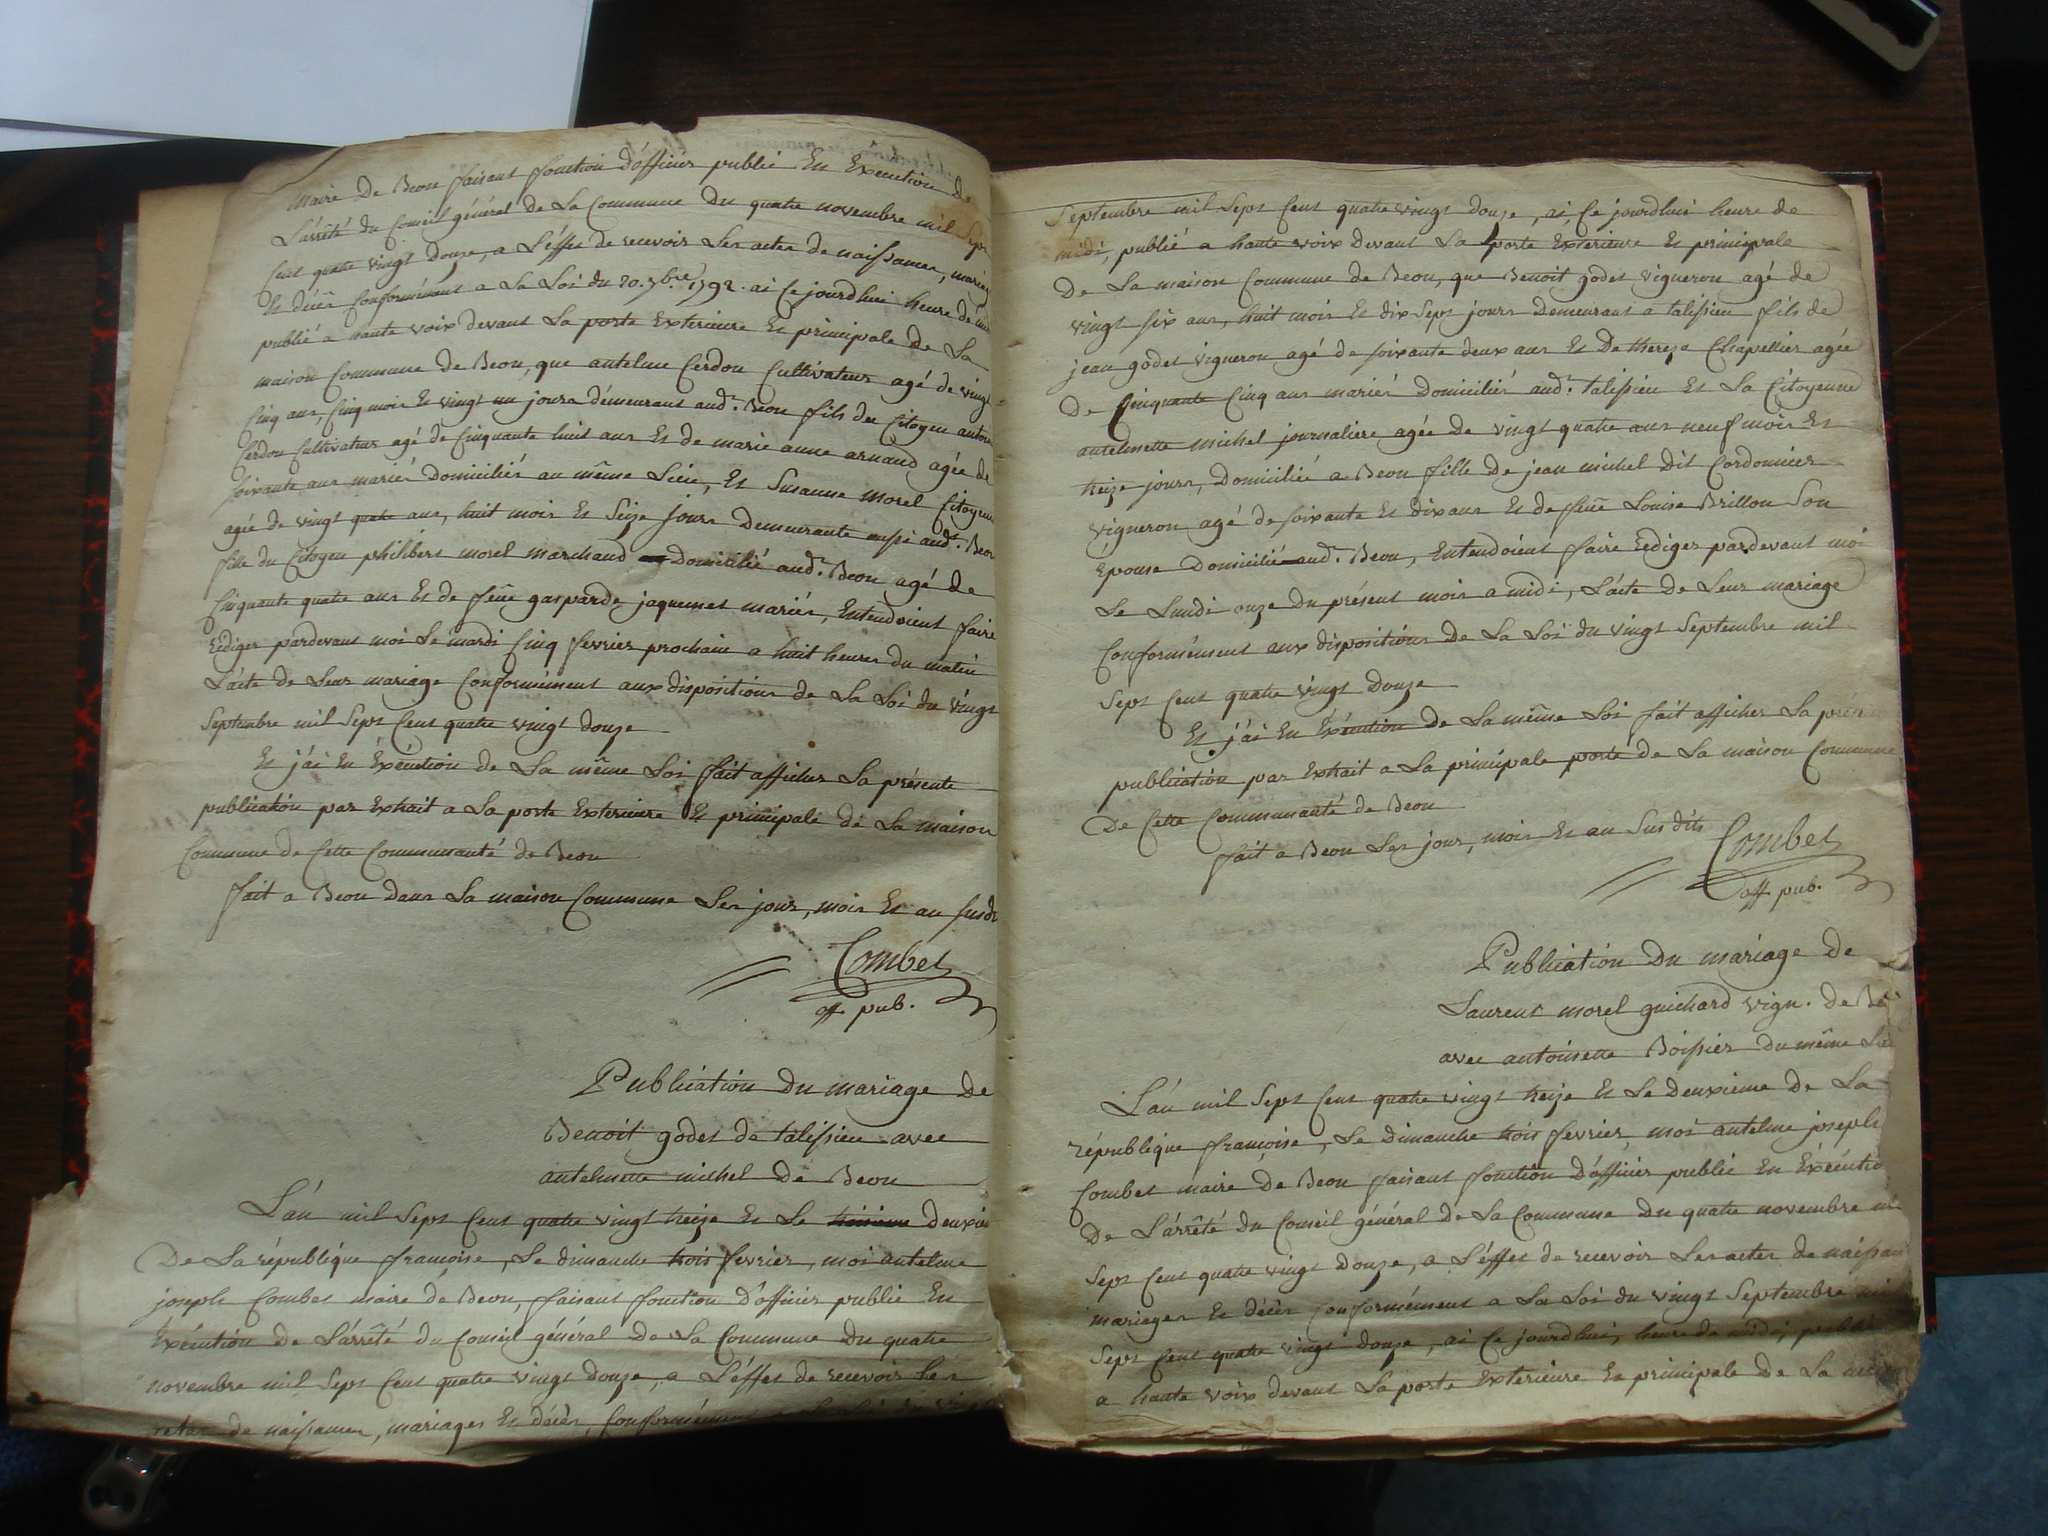 maire de Beon faisant fonction d'officier public En Execution de
L'arrêté du Conseil général de La Commune du quatre novembre mil Sept
Cent quatre vingt douze, a L'éffet de recevoir Les actes de naissances, mariages
Et décès Conformément a La Loi du 20. 7bre 1792. ai Ce jourdhui heure de midi
publié a haute voix devant La porte Exterieure Et principale de La
maison Commune de Beon, que antelme Cerdon Cultivateur agé de vingt
Cinq ans, Cinq mois Et vingt un jours démeurant aud.t Beon fils du Citoyen
Cerdon Cultivateur agé de Cinquante huit ans Et de marie anne arnaud agée de
soixante ans mariés Domiciliés au même Lieu, Et Susanne morel Citoyenne
agée de vingt quatre ans, huit mois Et Seize jours Demeurante aussi aud.t Beon
fille du Citoyen philibert morel marchand Domicilié aud.t Beon agé de
Cinquante quatre ans Et de feüe gasparde jaquemet mariés, Entendoient faire
Rédiger pardevant moi Le mardi Cinq fevrier prochain a huit heures du matin
L'acte de Leur mariage Conformément aux dispositions de La Loi du vingt
Septembre mil Sept Cent quatre vingt douze
Et j'ai En Exécution de La même Loi fait afficher La présente
publication par Extrait a La porte Exterieure Et principale de La maison
Commune de Cette Communauté de Beon
fait a Beon dans La maison Commune Les jour, mois Et an susdt
Combet
off. pub.
Publication du mariage de
Benoit godet de talissieu avec
antelmette michel de Beon
L'an mil Sept Cent quatre vingt treize Et Le troisieme deuxie
De La république francoise, Le dimanche trois fevrier, moi antelme
joseph Combet maire de Beon, faisant fonction D'officier public En
Exécution de L'arrêté du Conseil général de La Commune du quatre
novembre mil Sept Cent quatre vingt douze, a L'éffet de recevoir Les
actes de naissances, mariages Et décès, Conformément
Septembre mil Sept Cent quatre vingt douze, ai Ce jourdhui heure de
midi, publié a haute voix devant La porte Exterieure Et principale
De La maison Commune de Beon, que Benoit godet vigneron agé de
vingt six ans, huit mois Et dix Sept jours Demeurant a talissieu fils de
jean godet vigneron agé de soixante deux ans Et De thereze Chapellier agée
De Cinquante Cinq ans mariés Domiciliés aud.t talissieu Et La Citoyenne
antelmette michel journaliere agée de vingt quatre ans neuf mois Et
treize jours, Domiciliée a Beon fille de jean michel dit Cordonnier
vigneron agé de soixante Et dix ans Et de feüe Louise Brillon Son
Épouse Domicilié aud.t Beon, Entendoient faire Rédiger pardevant moi
Le Lundi onze du présent mois a midi, L'acte de Leur mariage
Conformément aux dispositions de La Loi du vingt Septembre mil
Sept Cent quatre vingt douze
Et j'ai En Exécution de La même Loi fait afficher La
publication par Extrait a La principale porte de La maison Commune
De Cette Communauté de Beon
fait a Beon Les jour, mois Et an Sus dits
Combet
off. pub.
Publication du mariage de
Laurent morel guichard vign. de
avec antoinette Boissier du même
L'an mil Sept Cent quatre vingt treize Et Le Deuxieme de La
république francoise, Le dimanche trois fevrier, moi antelme joseph
Combet maire de Beon faisant fonction D'officier public En Exécution
De L'arrêté du Conseil général de La Commune du quatre novembre mil
Sept Cent quatre vingt douze, a L'éffet de recevoir Les actes de naissances
mariages Et décès Conformément a La Loi du vingt Septembre mil
Sept Cent quatre vingt douze, ai Ce jourdhui, heure de midi, publié
a haute voix devant La porte Exterieure Et principale de La maison